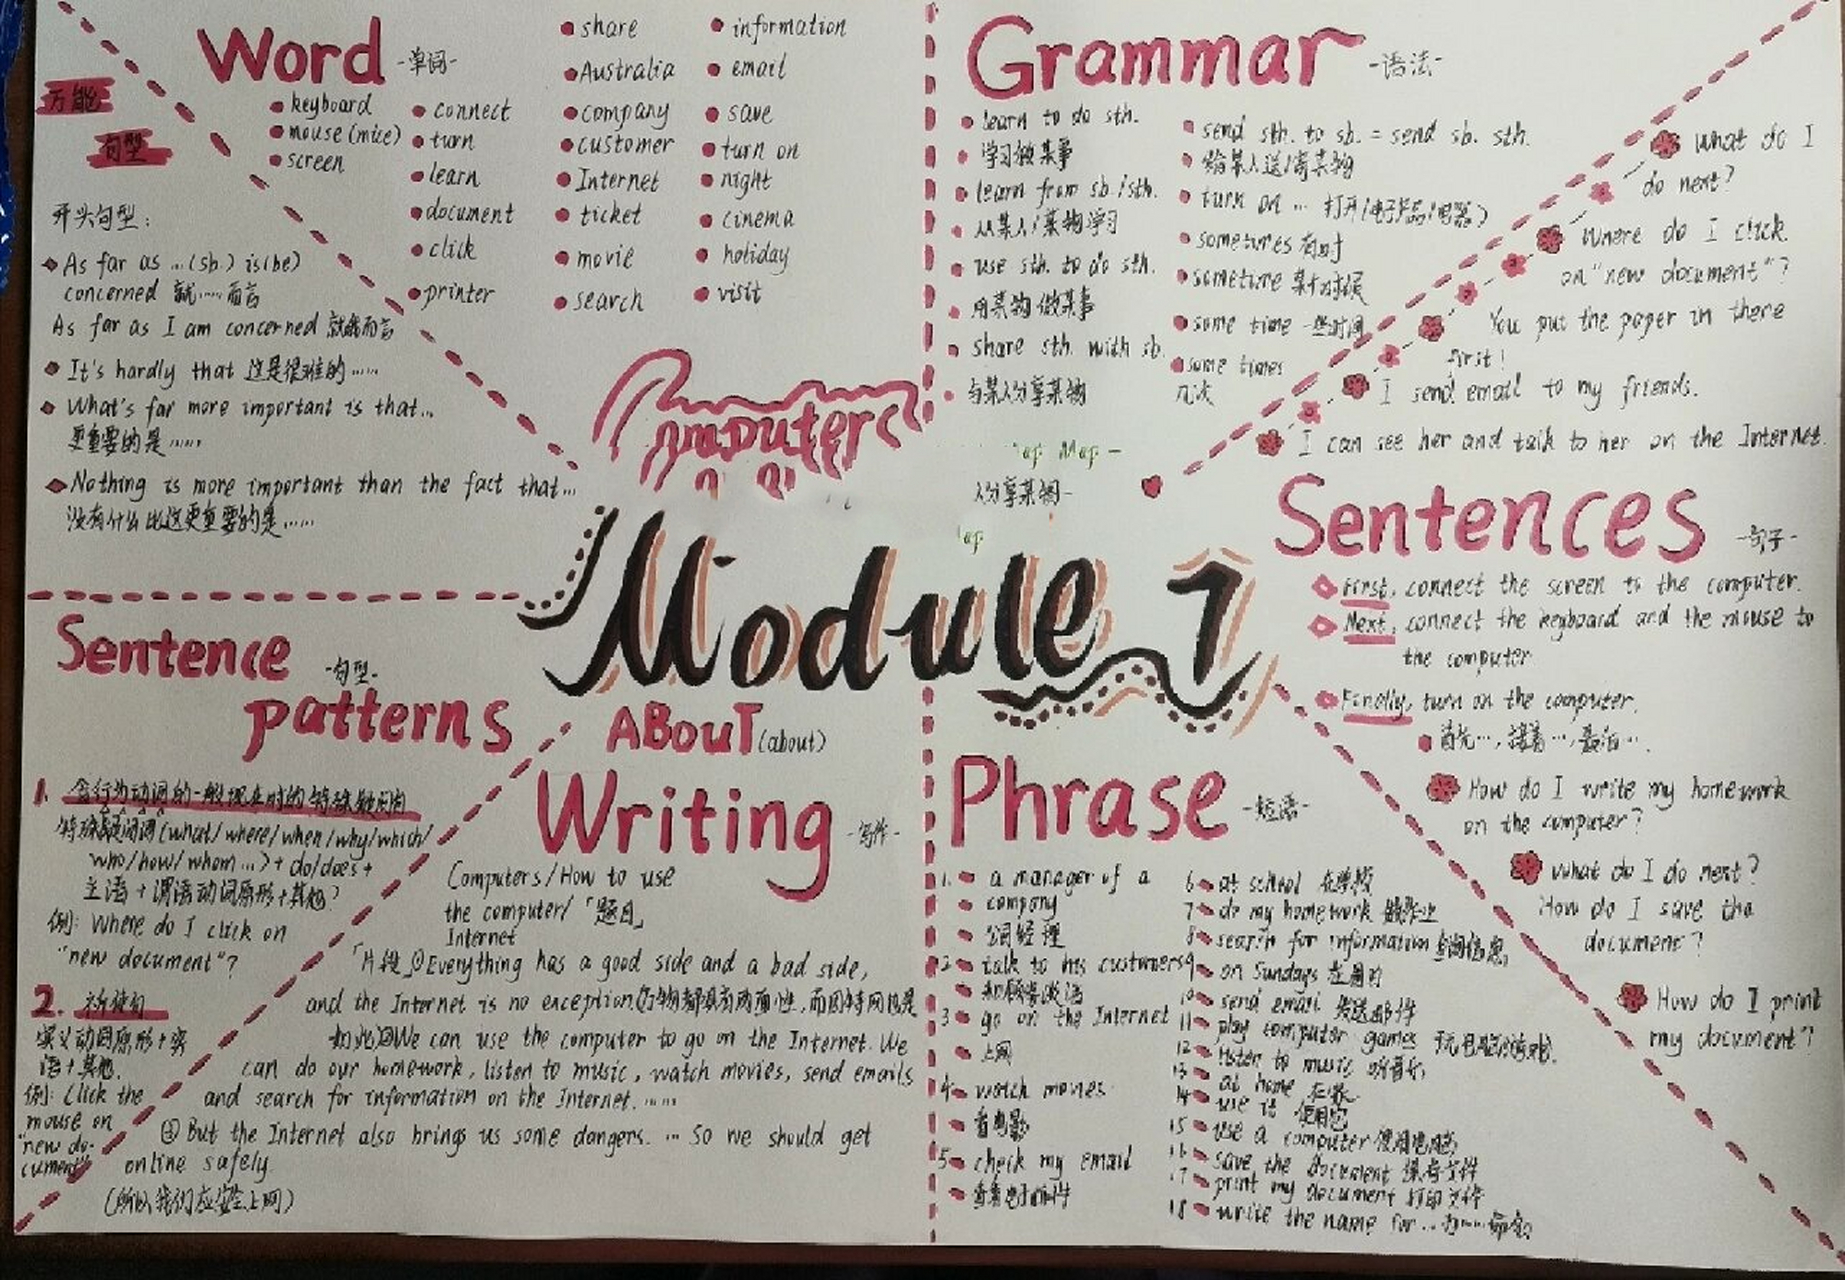 Word -单词-
keyboard
mouse (mice)
screen
connect
turn
learn
document
click
printer
share
Australia
company
customer
Internet
ticket
movie
search
information
email
save
turn on
night
cinema
holiday
visit
万能
句型
开头句型:
As far as ...(sb.) is(be)
concerned 就……而言
As far as I am concerned 就我而言
It's hardly that 这是很难的……
What's far more important is that...
更重要的是……
Nothing is more important than the fact that...
没有什么比这更重要的是……
Grammar -语法-
learn to do sth.
学习做某事
learn from sb./sth.
从某人/某物学习
use sth. to do sth.
用某物做某事
share sth. with sb.
与某人分享某物
send sth. to sb. = send sb. sth.
给某人送/寄某物
turn on ... 打开(电子产品/电器)
sometimes 有时
sometime 某个时候
some time 一些时间
some times
几次
What do I
do next?
Where do I click
on "new document"?
You put the paper in there
first!
I send email to my friends.
I can see her and talk to her on the Internet.
Computers
Map -
人分享某物-
Module 7
Sentences -句子-
First, connect the screen to the computer.
Next, connect the keyboard and the mouse to
the computer.
Finally, turn on the computer.
首先…,接着…,最后….
How do I write my homework
on the computer?
What do I do next?
How do I save the
document?
How do I print
my document?
Sentence -句型-
patterns
1. 含行为动词的一般现在时的特殊疑问句
特殊疑问词(what/where/when/why/which/
who/how/whom...)+ do/does+
主语+谓语动词原形+其他?
例: Where do I click on
"new document"?
2. 祈使句
实义动词原形+宾
语+其他.
例: Click the
mouse on
"new do-
cument"
ABOUT (about)
Writing -写作-
Computers/How to use
the computer/「题目」
Internet
「片段」①Everything has a good side and a bad side,
and the Internet is no exception.(万物都具有两面性,而因特网也是
如此)②We can use the computer to go on the Internet. We
can do our homework, listen to music, watch movies, send emails
and search for information on the Internet. ……
But the Internet also brings us some dangers. … So we should get
online safely.
(所以我们应安全上网)
Phrase -短语-
1. a manager of a
company
公司经理
2 talk to his customers
和顾客谈话
3 go on the Internet
上网
4 watch movies
看电影
5 check my email
查看电子邮件
6 at school 在学校
7 do my homework 做作业
8 search for information 查询信息
9 on Sundays 在周日
10 send email 发送邮件
11 play computer games 玩电脑游戏
12 listen to music 听音乐
13 at home 在家
14 use it 使用它
15 use a computer 使用电脑
16 save the document 保存文件
17 print my document 打印文件
18 write the name for ... 为……命名